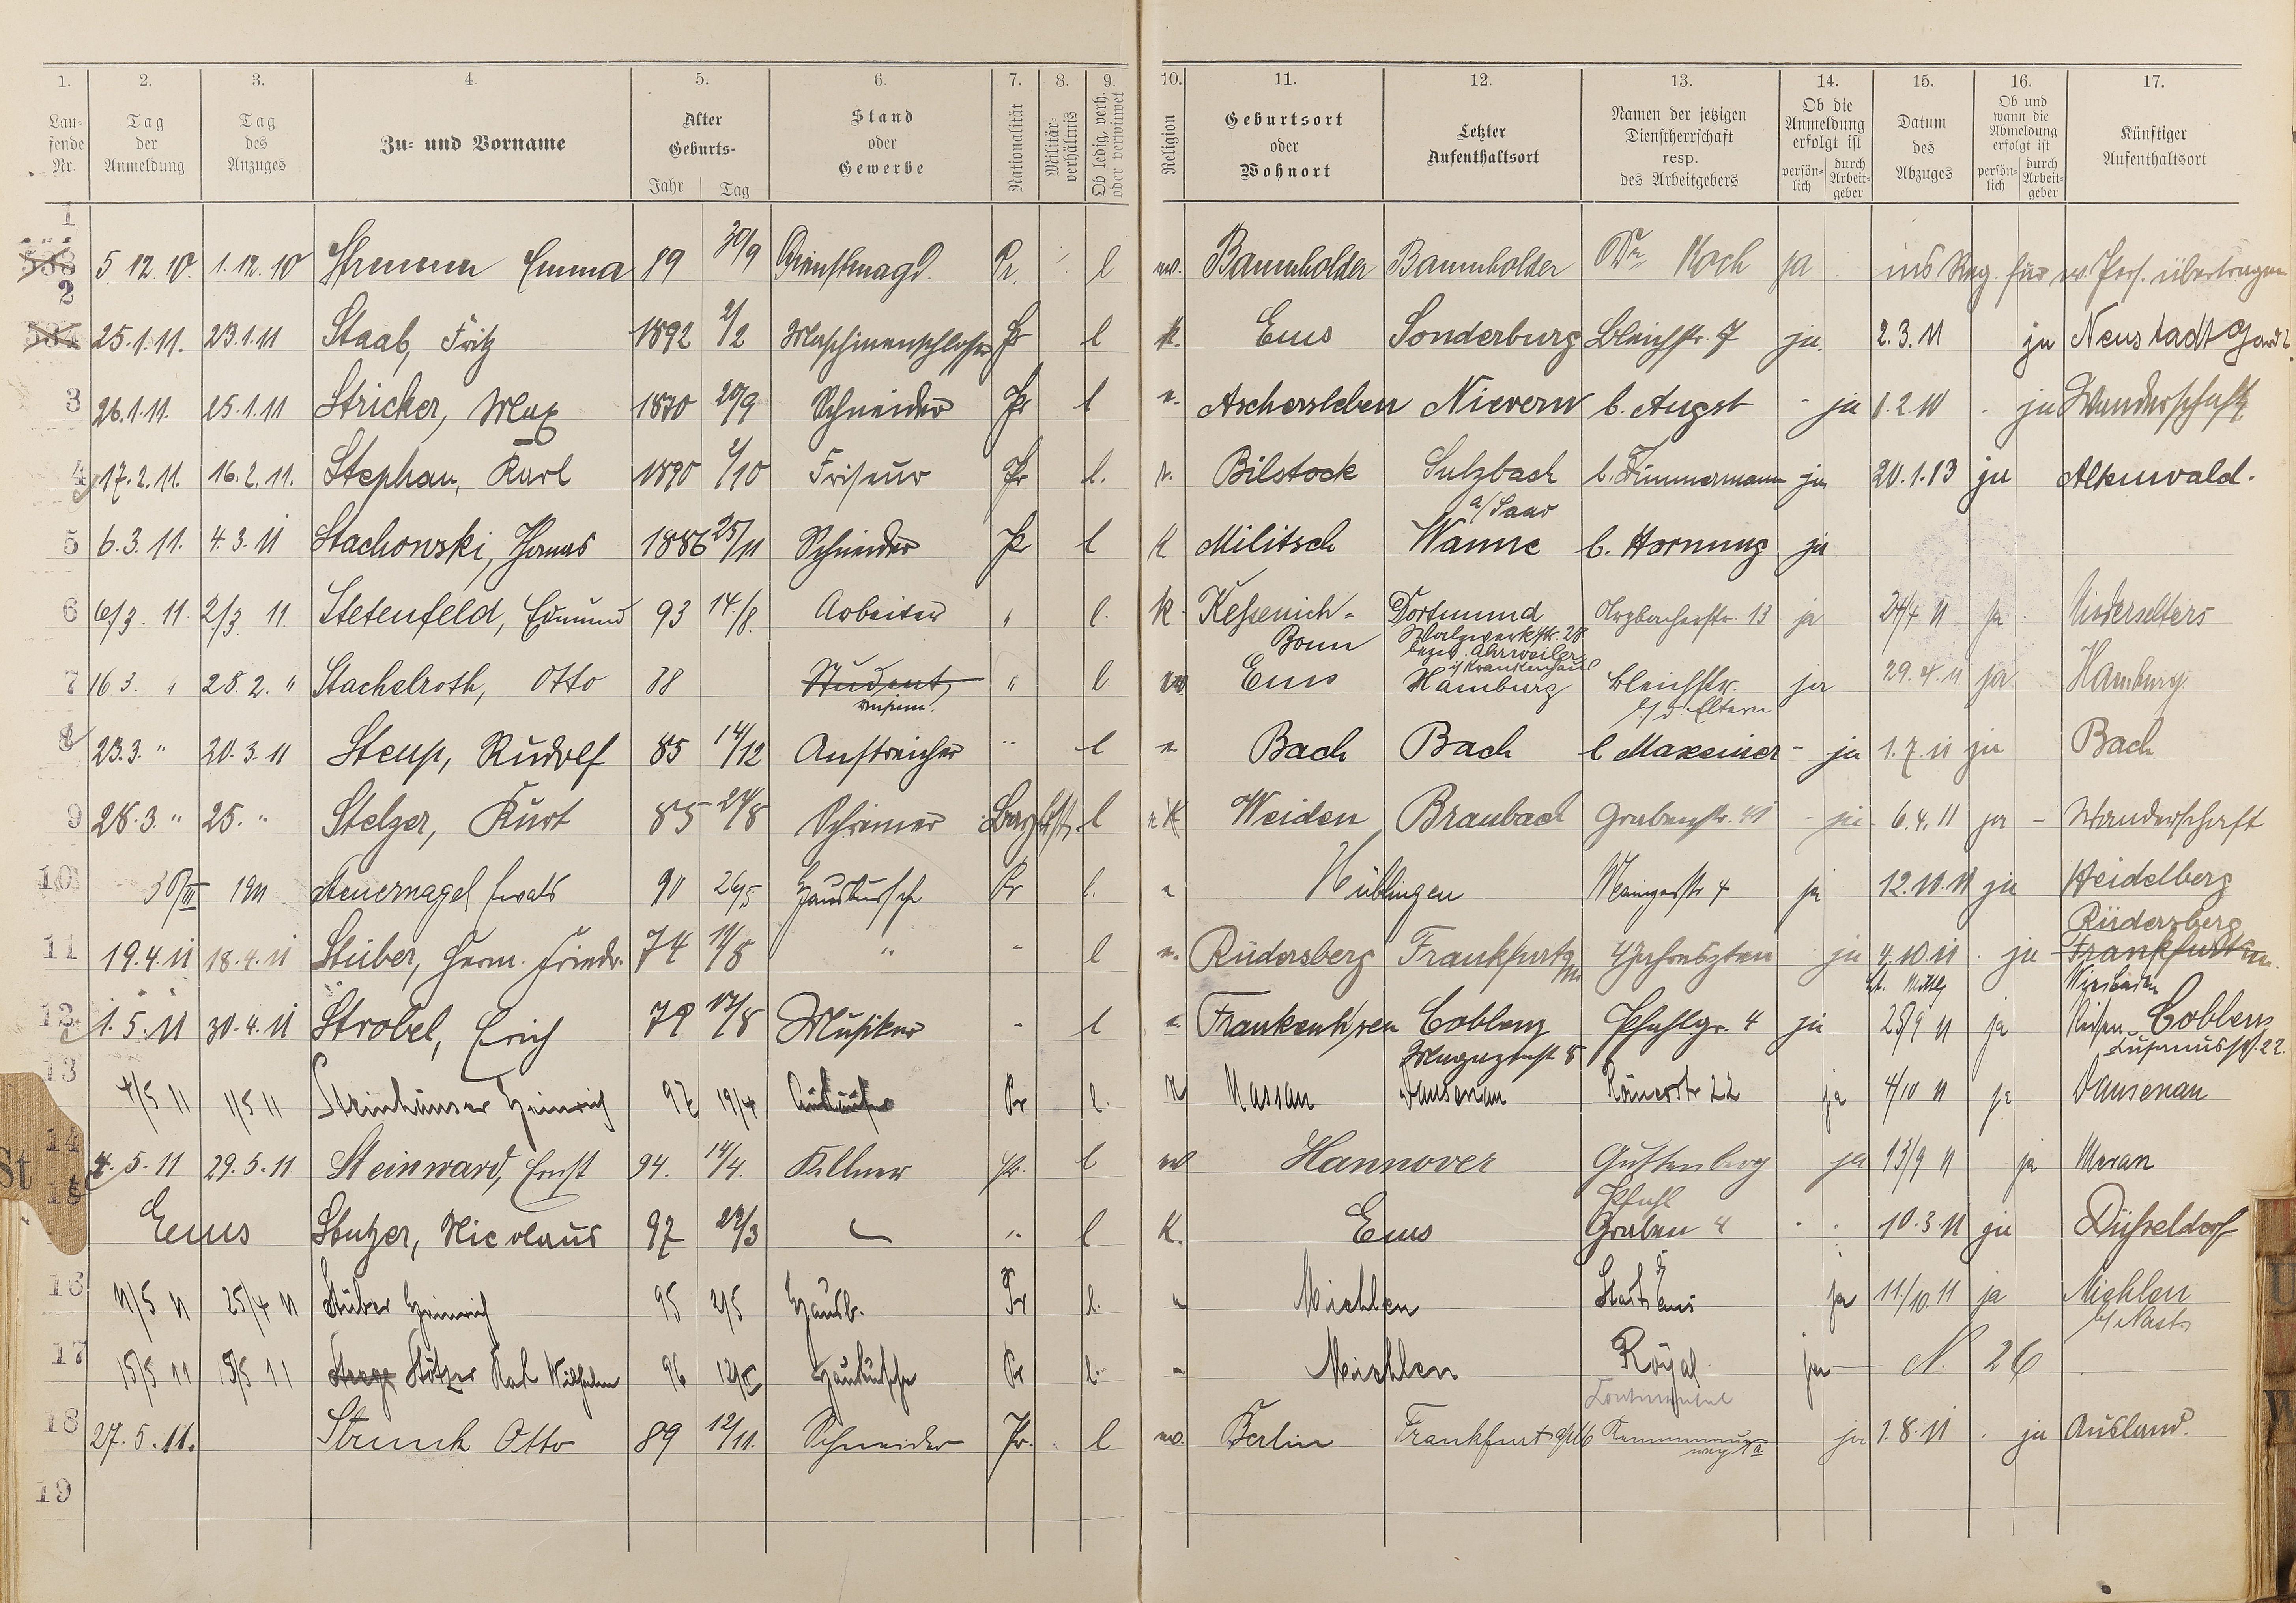 1. 2. 3. 4. 5. 6. 7. 8. 9. 10. 11. 12. 13. 14. 15. 16. 17.
Laufende Nr. Tag der Anmeldung Tag des Anzuges Zu- und Vorname Alter Geburts- Jahr Tag Stand oder Gewerbe Nationalität Militärverhältnis Ob ledig, verh. oder verwitwet Religion Geburtsort oder Wohnort Letzter Aufenthaltsort Namen der jetzigen Dienstherrschaft resp. des Arbeitgebers Ob die Anmeldung erfolgt ist persönlich durch Arbeitgeber Datum des Abzuges Ob und wann die Abmeldung erfolgt ist persönlich durch Arbeitgeber Künftiger Aufenthaltsort
1 5.12.10. 1.12.10 Emma 89 30/9 Dienstmagd. Pr. l Baumholder Baumholder Koch ja ins Reg. für w. Pers. übertragen
2 25.1.11. 23.1.11 Staab, Fritz 1892 2/2 Maschinenschlosser Pr l k. Ems Sonderburg Bleichstr. 7 ja 2.3.11 ja Neustadt
3 26.1.11. 25.1.11 Stricker, Max 1870 20/9 Schneider Pr l Aschersleben Nievern b. Augst - ja 1.2.11 - ja Wanderschaft
4 17.2.11. 16.2.11. Stephan, Karl 1890 2/10 Friseur Pr l. Bilstock Sulzbach a/Saar b. Zimmermann ja 20.1.13 ja Altenwald.
5 6.3.11. 4.3.11 Stachowski, Thomas 1886 25/11 Schneider Pr l k Militsch Wanne b. Hornung ja
6 6/3. 11. 2/3 11. Stetenfeld, Edmund 93 14./8. Arbeiter " l. k. Kessenich - Bonn Dortmund Walzwerkstr. 28 bezw. Ahrweiler i/Krankenhaus Arzbacherstr. 13 ja 24/4 11 ja Niederselters
7 16.3. " 28.2. " Stachelroth, Otto 88 Student " l. Ems Hamburg Bleichstr. b/d. Eltern ja 29.4.11 ja Hamburg.
8 23.3. " 20.3.11 Steup, Rudolf 85 14/12 Anstreicher " l Bach Bach b Maxeiner - ja 1.7.11 ja Bach
9 28.3. " 25. " Stelzer, Kurt 85 24/8 Schreiner l Weiden Braubach Grabenstr. 41 - ja - 6.4.11 ja - Wanderschaft
10 30/III 1911 Steuernagel Ewald 90 26/5 Hausbursche Pr l. Hüblingen Mainzerstr 4 ja 12.10.11 ja Heidelberg
11 19.4.11 18.4.11 Stüber, Herm. Friedr. 74 " " l Rüdersberg Frankfurt a/M ja 4.10.11 - ja Rüdersberg Frankfurt a/m. Wiesbaden
12 1.5.11 30.4.11 Strobel, Erich 79 17/8 Musiker - l Coblenz Pfuhlgr. 4 ja 25/9 11 ja Coblenz
13 4/5 11 1/5 11 Steinhäuser Heinrich 97 19/4 Pr l. Nassau Dausenau Römerstr 22 ja 4/10 11 ja Dausenau
14 4.5.11 29.5.11 Steinward, Ernst 94. 14/4. Kellner Pr. l Hannover Guttenberg ja 13/9 11 ja Meran
15 Ems Stutzer, Nicolaus 97 l K. Ems Pfuhl Graben 4 10.3.11 ja Düsseldorf
16 11/5 11 25/4 11 Stüber Heinrich 95 2/5 Hausb. Pr l. Miehlen ja 11./10.11 ja Miehlen
17 15/5 11 15/5 11 Stötzer Karl Wilhelm 96 Hausbursche Pr l. Miehlen Royal ja N. 26
18 27.5.11. Strunk Otto 89 12/11. Schneider Pr. l Berlin Frankfurt a/M ja 1.8.11 - ja Ausland.
19
St